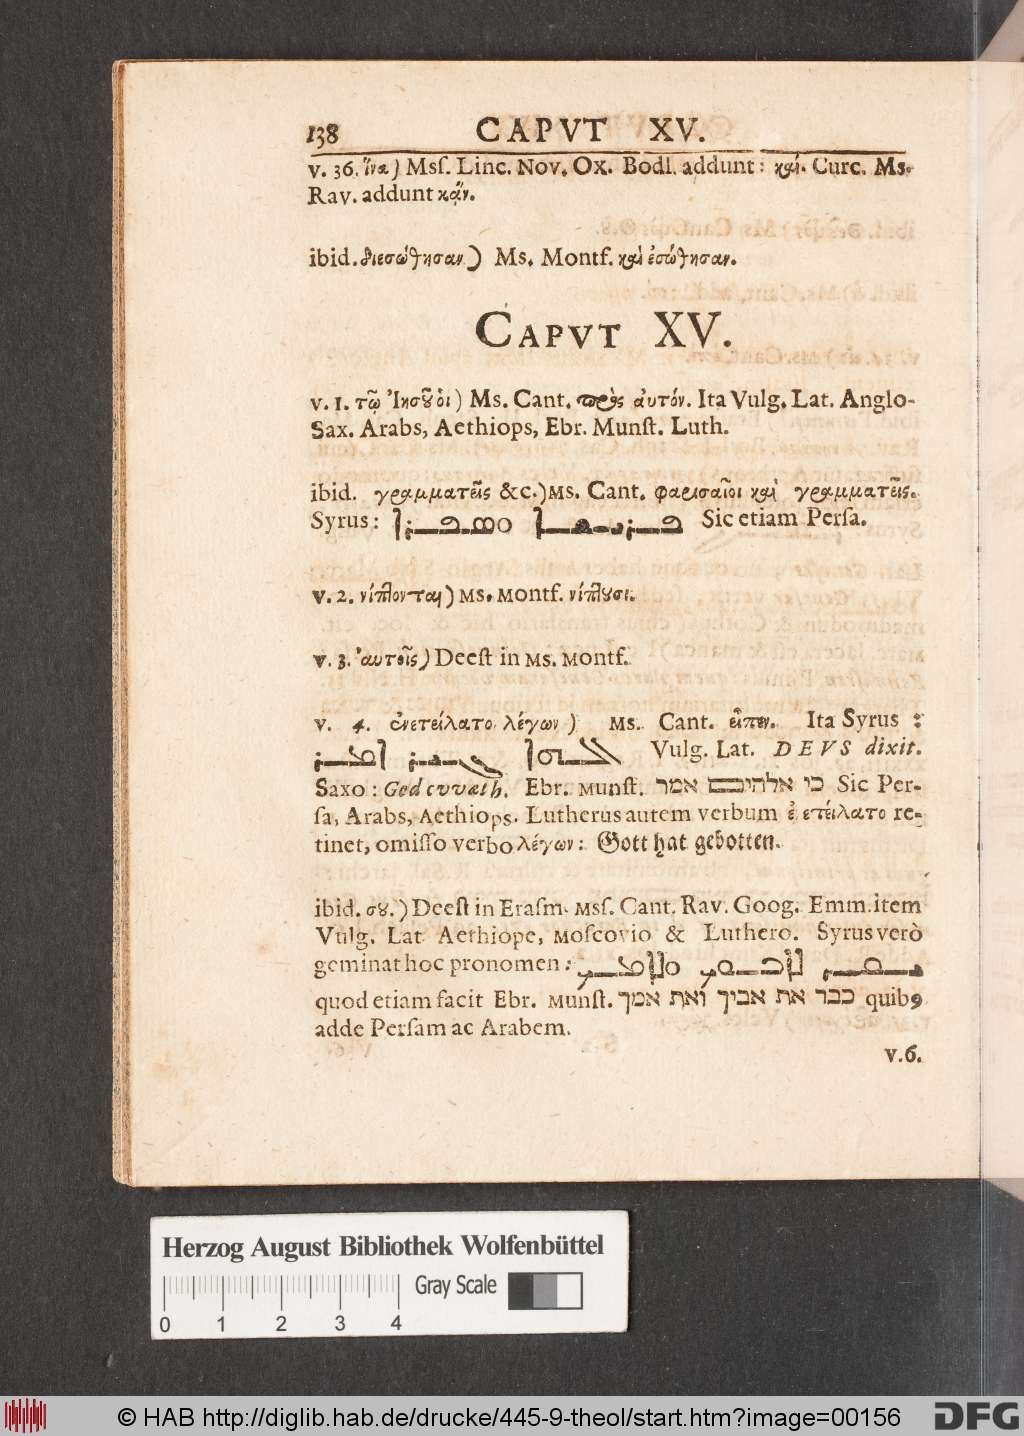 138 CAPVT XV.
v. 36. ἵνα) Msſ. Linc. Nov. Ox. Bodl. addunt: καί. Curc. Ms.
Rav. addunt κᾄν.
ibid. διεσώθησαν) Ms. Montf. καὶ ἐσώθησαν.
CAPVT XV.
v. 1. τῷ Ἰησοῦ οἱ) Ms. Cant. πρὸς ἀυτόν. Ita Vulg. Lat. Anglo-
Sax. Arabs, Aethiops, Ebr. Munſt. Luth.
ibid. γραμματεῖς &c.) Ms. Cant. φαρισαῖοι καὶ γραμματεῖς.
Syrus: ܦܪܝܫܐ ܘܣܦܪܐ Sic etiam Perſa.
v. 2. νίπτονται) Ms. Montf. νίπτουσι.
v. 3. ἀυτοῖς) Deeſt in Ms. Montf.
v. 4. ἐνετείλατο λέγων) Ms. Cant. εἶπεν. Ita Syrus:
Vulg. Lat. DEVS dixit.
Saxo: God cvvæth. Ebr. Munſt. כי אלהים אמר Sic Per-
ſa, Arabs, Aethiops. Lutherus autem verbum ἐ ετείλατο re-
tinet, omiſſo verbo λέγων: Gott hat gebotten.
ibid. σου.) Deeſt in Eraſm. Msſ. Cant. Rav. Goog. Emm. item
Vulg. Lat. Aethiope, Moſcovio & Luthero. Syrus verò
geminat hoc pronomen:
quod etiam facit Ebr. Munſt. כבר את אביך ואת אמך quibꝰ
adde Perſam ac Arabem.
v. 6.
Herzog August Bibliothek Wolfenbüttel
Gray Scale
0 1 2 3 4
© HAB http://diglib.hab.de/drucke/445-9-theol/start.htm?image=00156 DFG